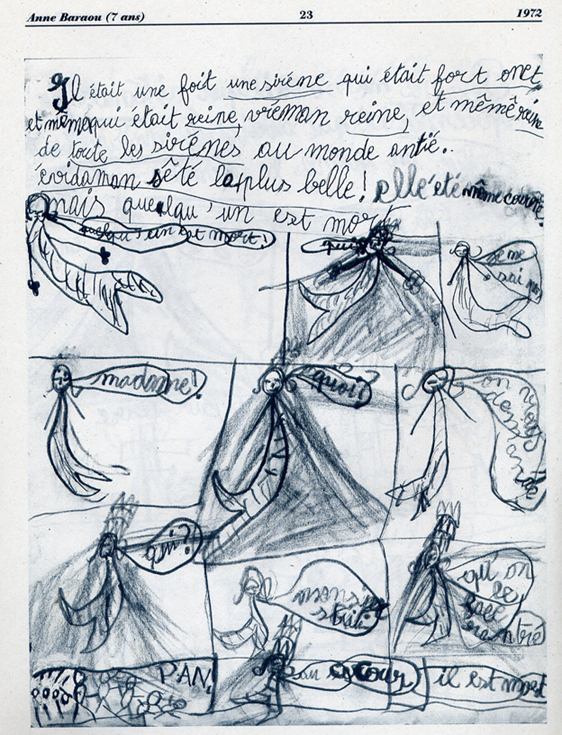 Anne Baraou (7 ans) 23 1972
Il était une foit une sirène qui était fort onet
et mêm qui était reine, vréman reine, et même reine
de toute les sirénes au monde antié..
évidaman sété la plus belle! elle été même courone
mais quelqu'un est mort
quelqu'un est mort!
qui?
je ne sai pas
madame!
quoi?
on vous demande
qui?
monsstre
qu'on le
PAN!
au secour
il est mort